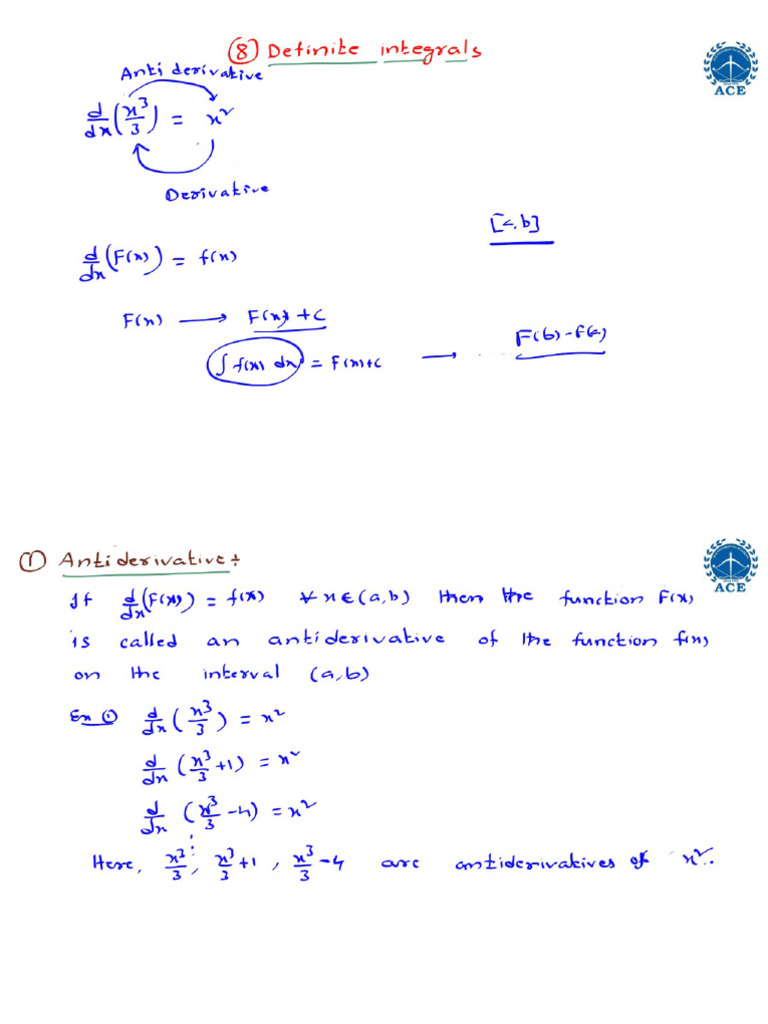 ⑧ Definite integrals
ACE
Anti derivative
d/dx (x³/3) = x²
Derivative
[a,b]
d/dx (F(x)) = f(x)
F(x) → F(x) + C
F(b)-f(a)
∫ f(x) dx = F(x)+C →
① Antiderivative ÷
ACE
If d/dx (F(x)) = f(x) ∀ x ∈ (a,b) then the function F(x)
is called an antiderivative of the function f(x)
on the interval (a,b)
Ex ① d/dx (x³/3) = x²
d/dx (x³/3 +1) = x²
d/dx (x³/3 -4) = x²
Here, x³/3, x³/3 +1, x³/3 -4 are antiderivatives of x².